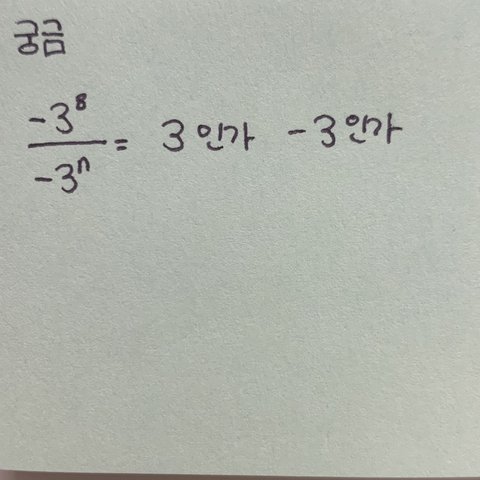 궁금
-3⁸
-3ⁿ = 3인가 -3인가